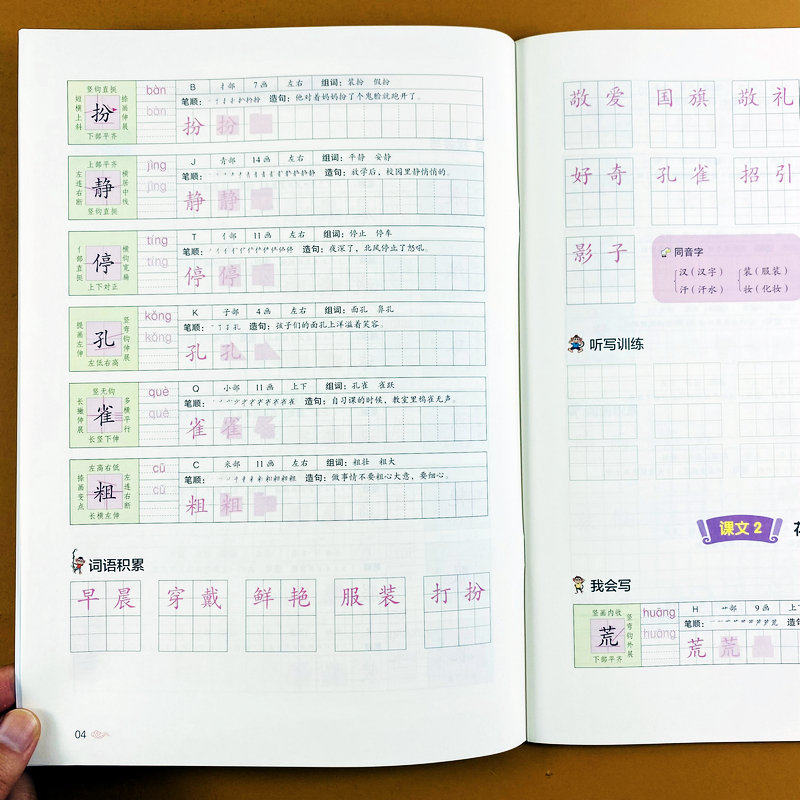 竖钩直挺
短横上斜
扮
捺画伸展
下部平齐
bàn
bàn
B 扌部 7画 左右 组词：装扮 假扮
笔顺： 造句：他对着妈妈扮了个鬼脸就跑开了。
扮 扮
上部平齐
左连右断
静
横居中线
竖钩直挺
jìng
jìng
J 青部 14画 左右 组词：平静 安静
笔顺： 造句：放学后，校园里静悄悄的。
静 静
亻部直挺
停
横钩宽扁
上下对正
tíng
tíng
T 亻部 11画 左右 组词：停止 停车
笔顺： 造句：夜深了，北风停止了怒吼。
停 停
提画左伸
孔
竖弯钩伸展
左低右高
kǒng
kǒng
K 子部 4画 左右 组词：面孔 鼻孔
笔顺： 造句：孩子们的面孔上洋溢着笑容。
孔 孔
竖无钩
长撇伸展
雀
多横平行
长竖下伸
què
què
Q 小部 11画 上下 组词：孔雀 雀跃
笔顺： 造句：自习课的时候，教室里鸦雀无声。
雀 雀
左高右低
捺画变点
粗
左连右断
长横左伸
cū
cū
C 米部 11画 左右 组词：粗壮 粗大
笔顺： 造句：做事情不要粗心大意，要细心。
粗 粗
词语积累
早晨 穿戴 鲜艳 服装 打扮
04
敬爱 国旗 敬礼
好奇 孔雀 招引
影子
同音字
汉（汉字） 装（服装）
汗（汗水） 妆（化妆）
听写训练
课文 2
我会写
竖画内收
荒
竖弯钩外展
下部平齐
huāng
huāng
H 艹部 9画 上
笔顺： 造句
荒 荒